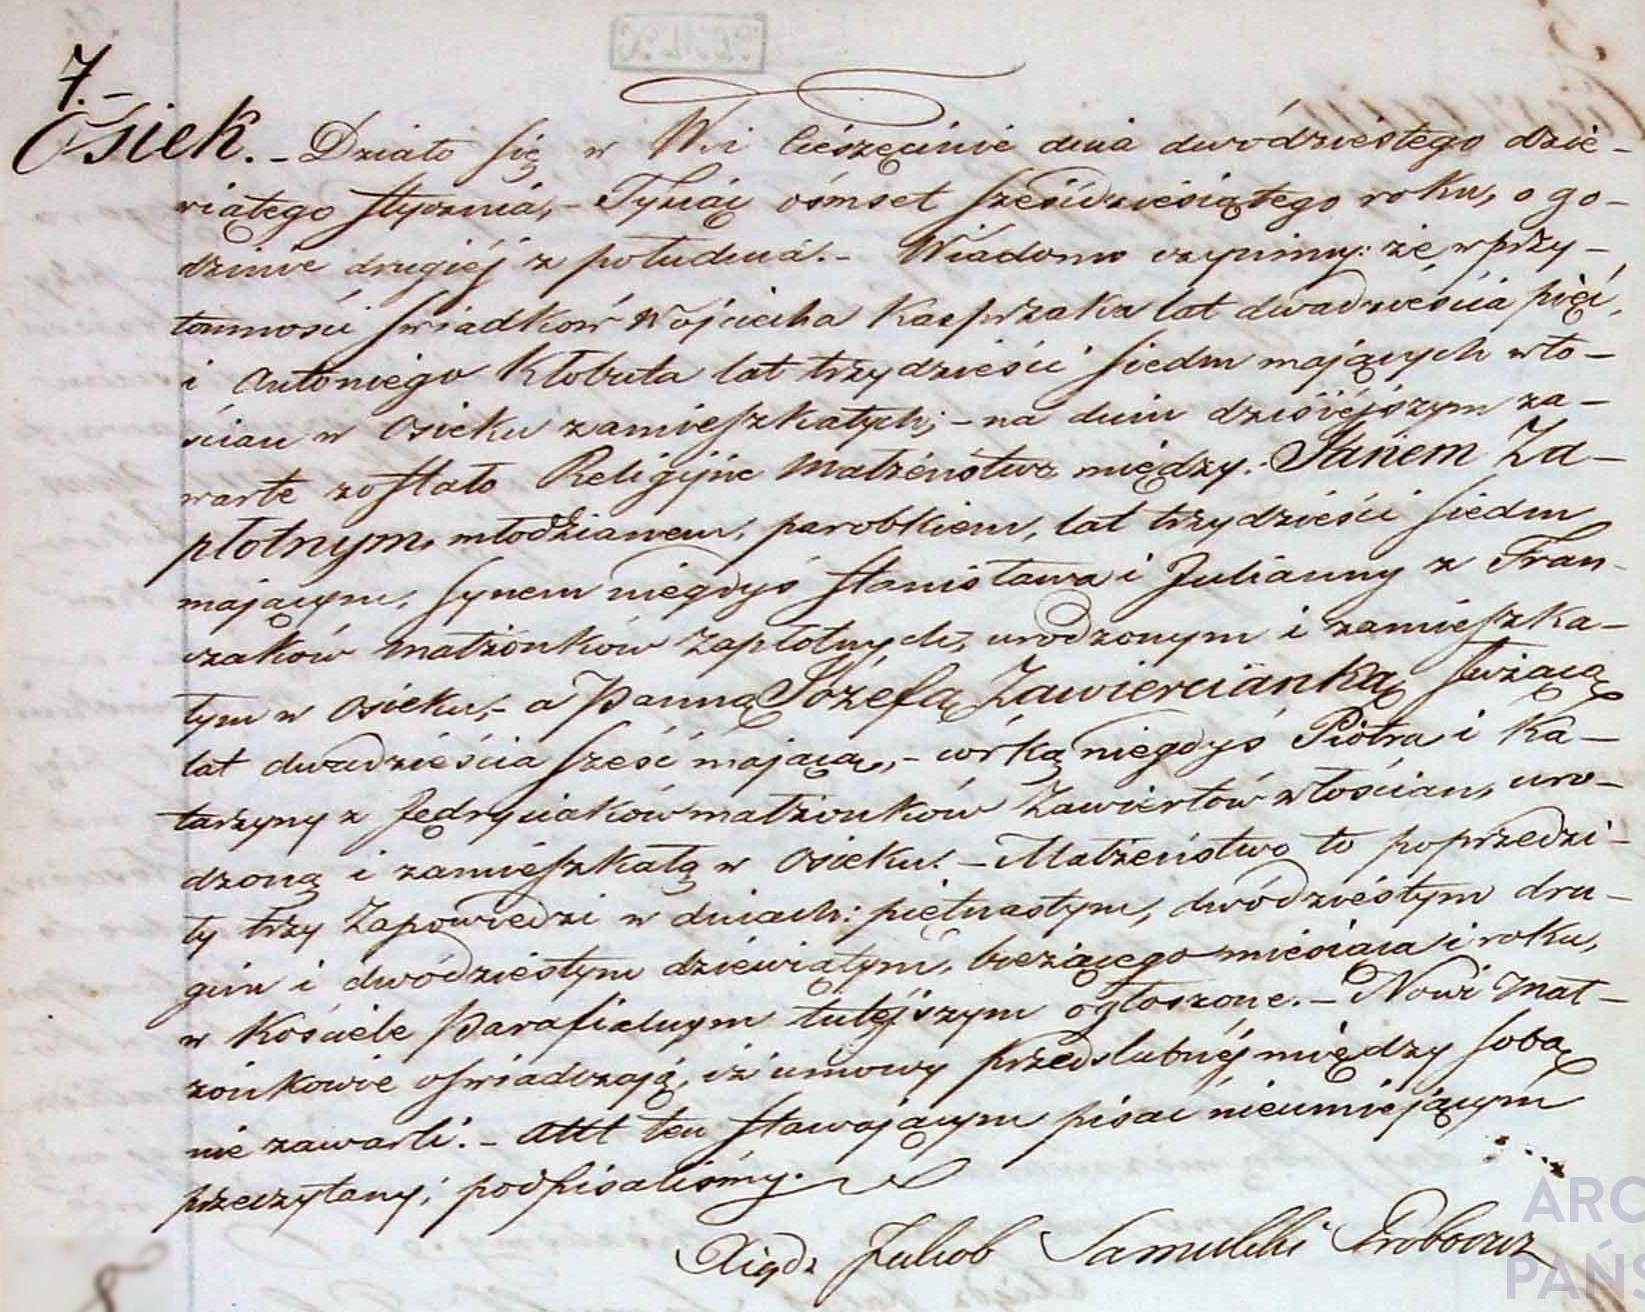 7.-
Osiek. - Działo się w Wsi Cieszęcinie dnia dwódziestego dzie-
wiątego stycznia, - Tysiąc ośmset sześćdziesiątego roku, o go-
dzinie drugiéj z południa. - Wiadomo czynimy: że w przy-
tomności świadków Wojciecha Kasprzaka lat dwadzieścia pięć,
i Antoniego Kłobuta lat trzydzieści siedm mających wło-
ścian w Osieku zamieszkałych; - na dniu dzisiéjszym za-
warte zostało Religijne Małżeństwo między: Janem Za-
płotnym, młodzianem, parobkiem, lat trzydzieści siedm
mającym, synem niegdyś Stanisława i Julianny z Fran-
czaków małżonków Zapłotnych, urodzonym i zamieszka-
łym w Osieku, - a Panną Józefą Zawiercianką służącą
lat dwadzieścia sześć mającą, - córką niegdyś Piotra i Ka-
tarzyny z Jędrysiaków małżonków Zawiertów włościan, uro-
dzoną i zamieszkałą w Osieku. - Małżeństwo to poprzedzi-
ły trzy Zapowiedzi w dniach: piętnastym, dwódziestym dru-
gim i dwódziestym dziewiątym, bieżącego miesiąca i roku,
w Kościele Parafialnym tutéjszym ogłoszone. - Nowi Mał-
żonkowie oświadczają, iż umowy przedślubnéj między sobą
nie zawarli. - Akt ten stawającym pisać nieumiejącym
przeczytany; podpisaliśmy.
Xiądz Jakób Samulski Proboszcz
ARC
PAŃS